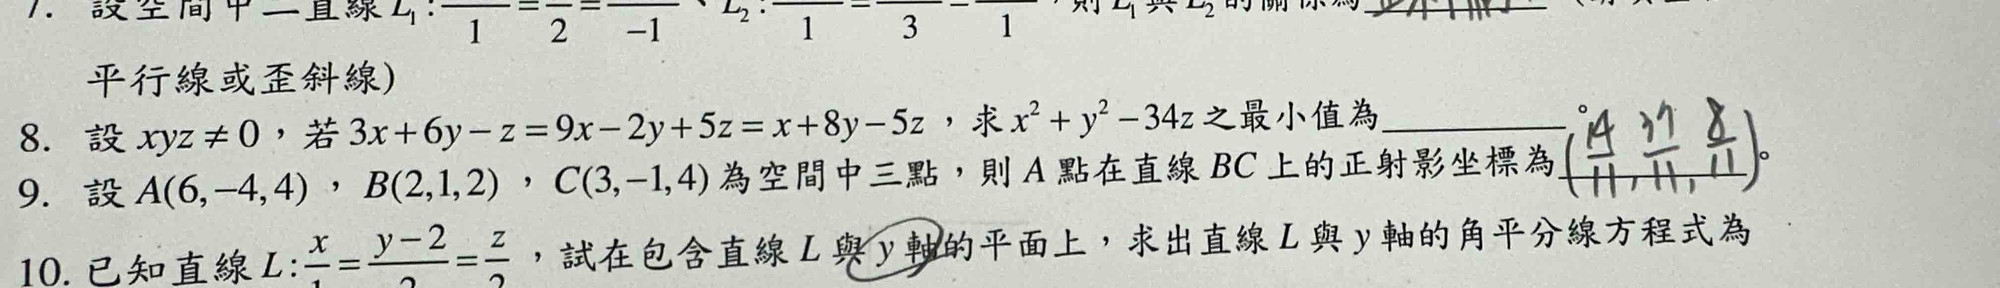 7. 設空間中二直線 L₁: 1 = 2 = −1 、 L₂: 1 = 3 = 1 ,則 L₁ 與 L₂ 的關係為
平行線或歪斜線)
8. 設 xyz ≠ 0 ,若 3x+6y−z=9x−2y+5z=x+8y−5z ,求 x²+y²−34z 之最小值為__________。
9. 設 A(6,−4,4) , B(2,1,2) , C(3,−1,4) 為空間中三點,則 A 點在直線 BC 上的正射影坐標為 ( /11, /11, 8/11)。
10. 已知直線 L: x/1 = y−2/2 = z/2 ,試在包含直線 L 與 y 軸的平面上,求出直線 L 與 y 軸的角平分線方程式為